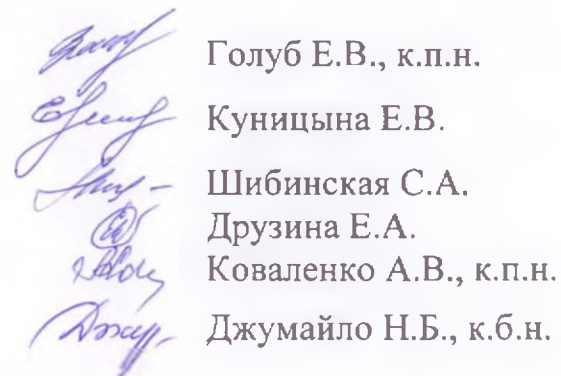 Голуб Е.В., к.п.н.
Куницына Е.В.
Шибинская С.А.
Друзина Е.А.
Коваленко А.В., к.п.н.
Джумайло Н.Б., к.б.н.